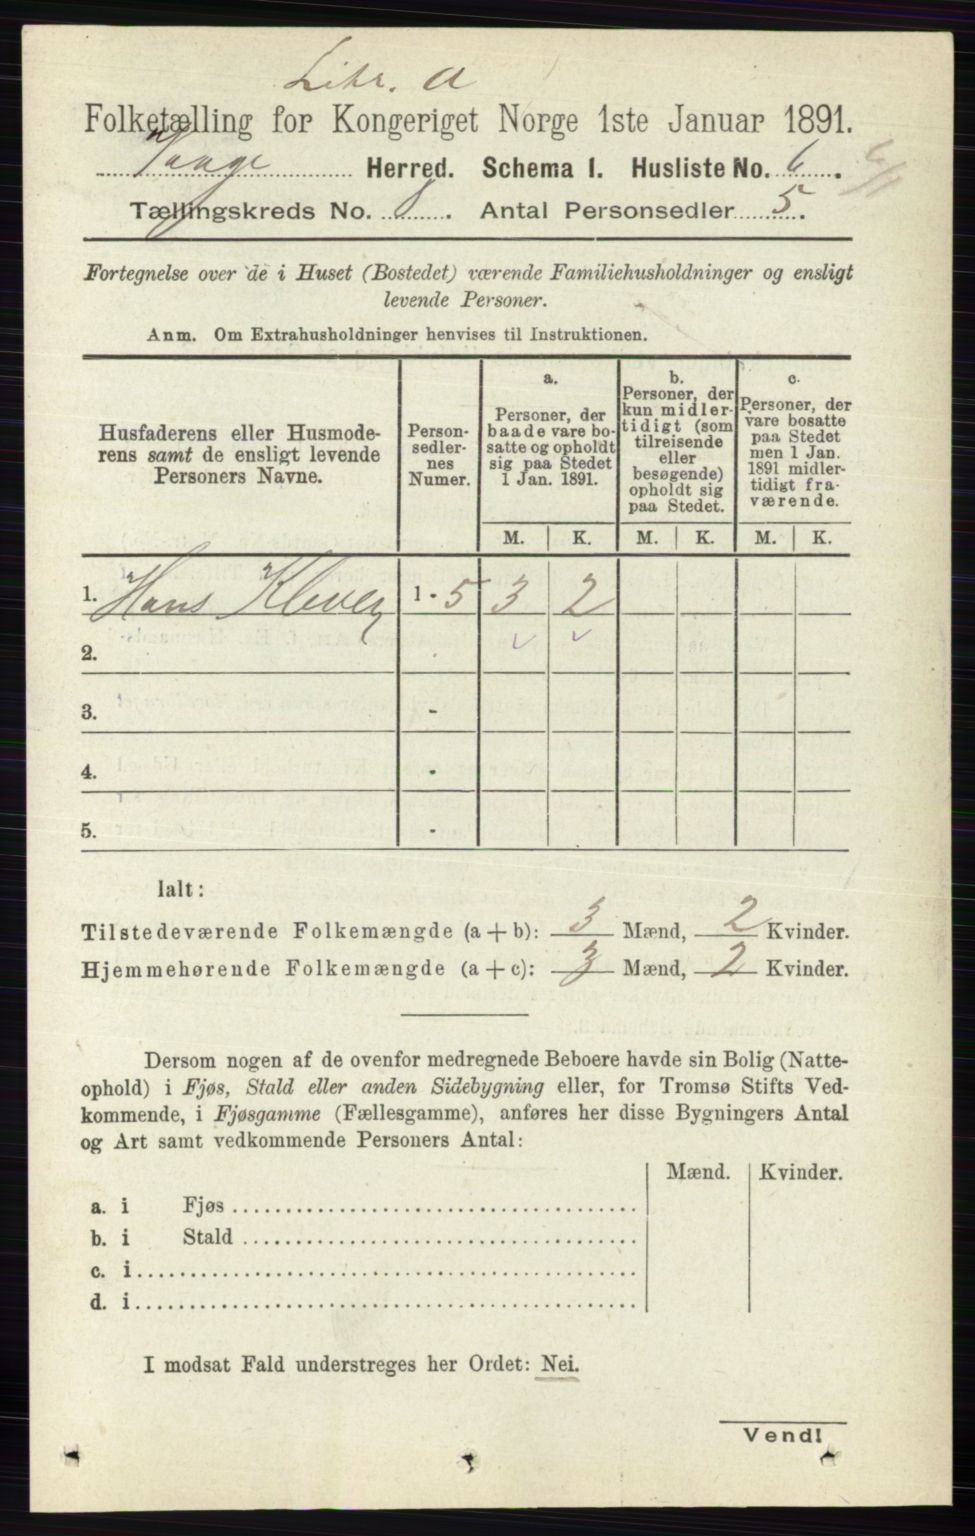 Litr. A
Folketælling for Kongeriget Norge 1ste Januar 1891.
Vaage Herred. Schema I. Husliste No. 6.
Tællingskreds No. 8. Antal Personsedler 5.
Fortegnelse over de i Huset (Bostedet) værende Familiehusholdninger og ensligt
levende Personer.
Anm. Om Extrahusholdninger henvises til Instruktionen.
Husfaderens eller Husmode-
rens samt de ensligt levende
Personers Navne.
Person-
sedler-
nes
Numer.
a.
Personer, der
baade vare bo-
satte og opholdt
sig paa Stedet
1 Jan. 1891.
b.
Personer, der
kun midler-
tidigt (som
tilreisende
eller
besøgende)
opholdt sig
paa Stedet.
c.
Personer, der
vare bosatte
paa Stedet
men 1 Jan.
1891 midler-
tidigt fra-
værende.
M. K. M. K. M. K.
1. Hans 1 - 5 3 2
2.
3. -
4. -
5. -
Ialt:
Tilstedeværende Folkemængde (a + b): 3 Mænd, 2 Kvinder.
Hjemmehørende Folkemængde (a + c): 3 Mænd, 2 Kvinder.
Dersom nogen af de ovenfor medregnede Beboere havde sin Bolig (Natte-
ophold) i Fjøs, Stald eller anden Sidebygning eller, for Tromsø Stifts Ved-
kommende, i Fjøsgamme (Fællesgamme), anføres her disse Bygningers Antal
og Art samt vedkommende Personers Antal:
Mænd. Kvinder.
a. i Fjøs
b. i Stald
c. i
d. i
I modsat Fald understreges her Ordet: Nei.
Vend!